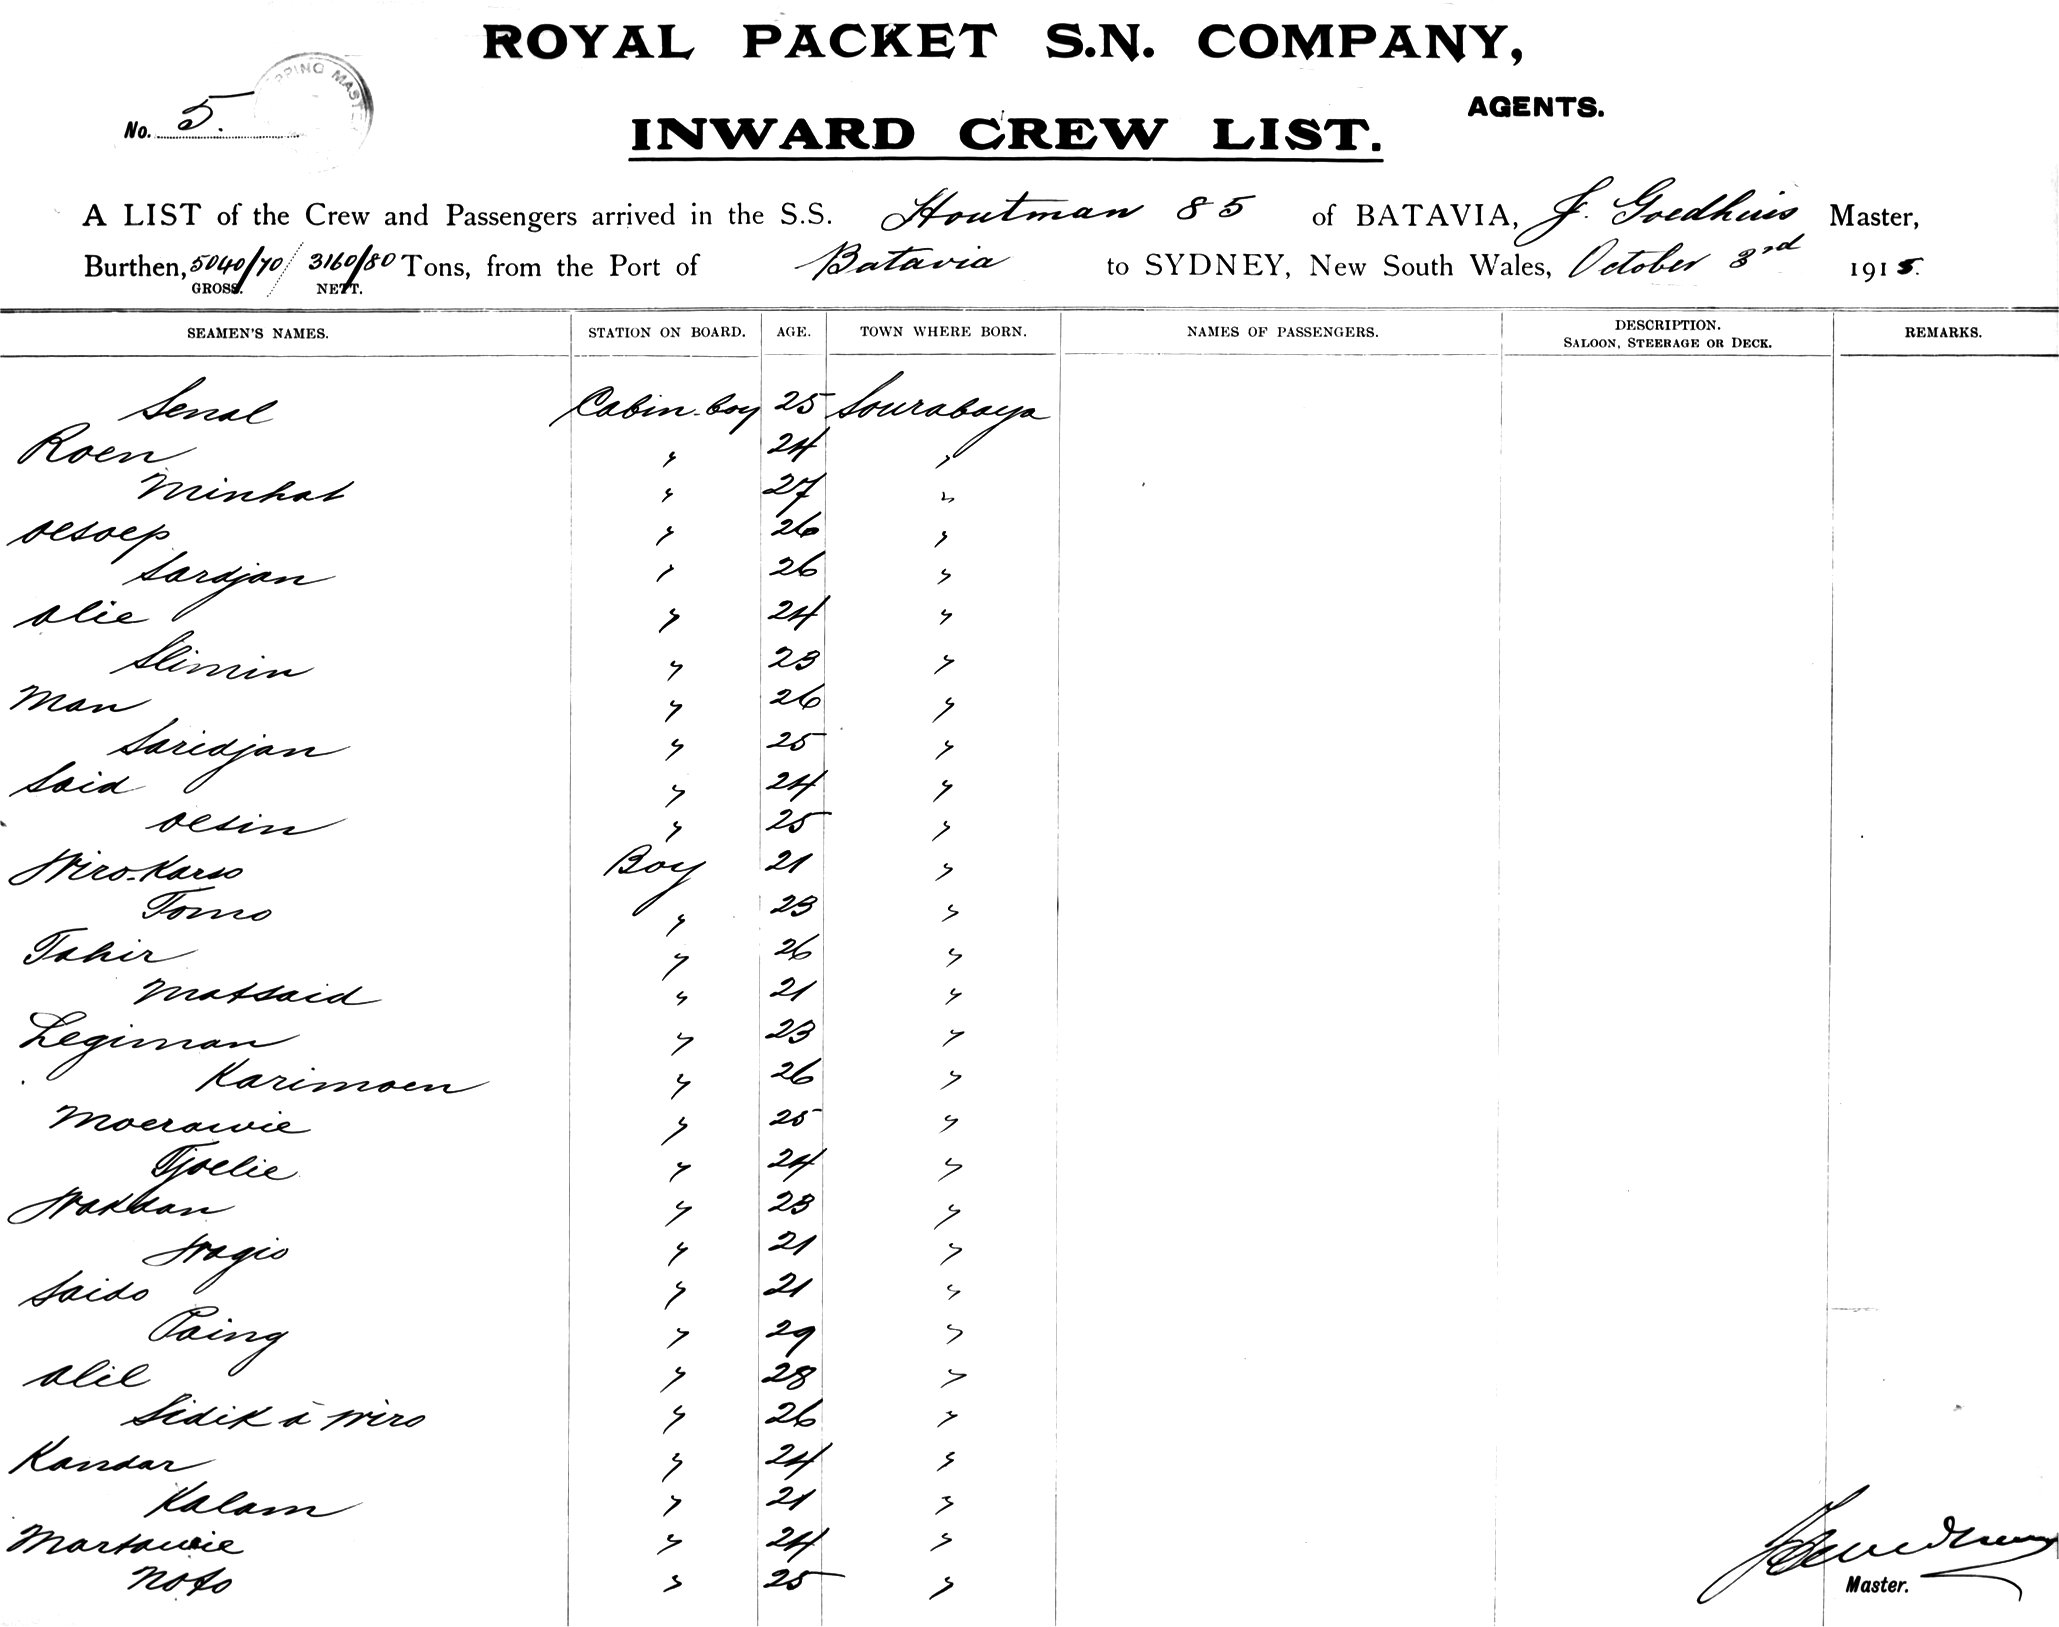 ROYAL PACKET S.N. COMPANY,
AGENTS.
No. 5.
PPING MAST
INWARD CREW LIST.
A LIST of the Crew and Passengers arrived in the S.S. Houtman 85 of BATAVIA, J. Goedhuis Master,
Burthen, 5040/70 / 3160/80 Tons, from the Port of Batavia to SYDNEY, New South Wales, October 3rd 1915.
GROSS. NETT.
SEAMEN'S NAMES. STATION ON BOARD. AGE. TOWN WHERE BORN. NAMES OF PASSENGERS. DESCRIPTION. SALOON, STEERAGE OR DECK. REMARKS.
Senal Cabin-boy 25 Sourabaya
Roen " 24 "
Minhat " 27 "
Oesoep " 26 "
Sardjan " 26 "
Alie " 24 "
Slimin " 23 "
Man " 26 "
Saridjan " 25 "
Said " 24 "
Oesin " 25 "
Wiro-Karso Boy 21 "
Tomo " 23 "
Tahir " 26 "
Matsaid " 21 "
Legiman " 23 "
Karimoen " 26 "
Moerawie " 25 "
Tjoelie " 24 "
Wakdan " 23 "
Wagio " 21 "
Saido " 21 "
Paing " 29 "
Alil " 28 "
Sidik à Wiro " 26 "
Kandar " 24 "
Kalam " 21 "
Martawie " 24 "
Noto " 25 "
Master.